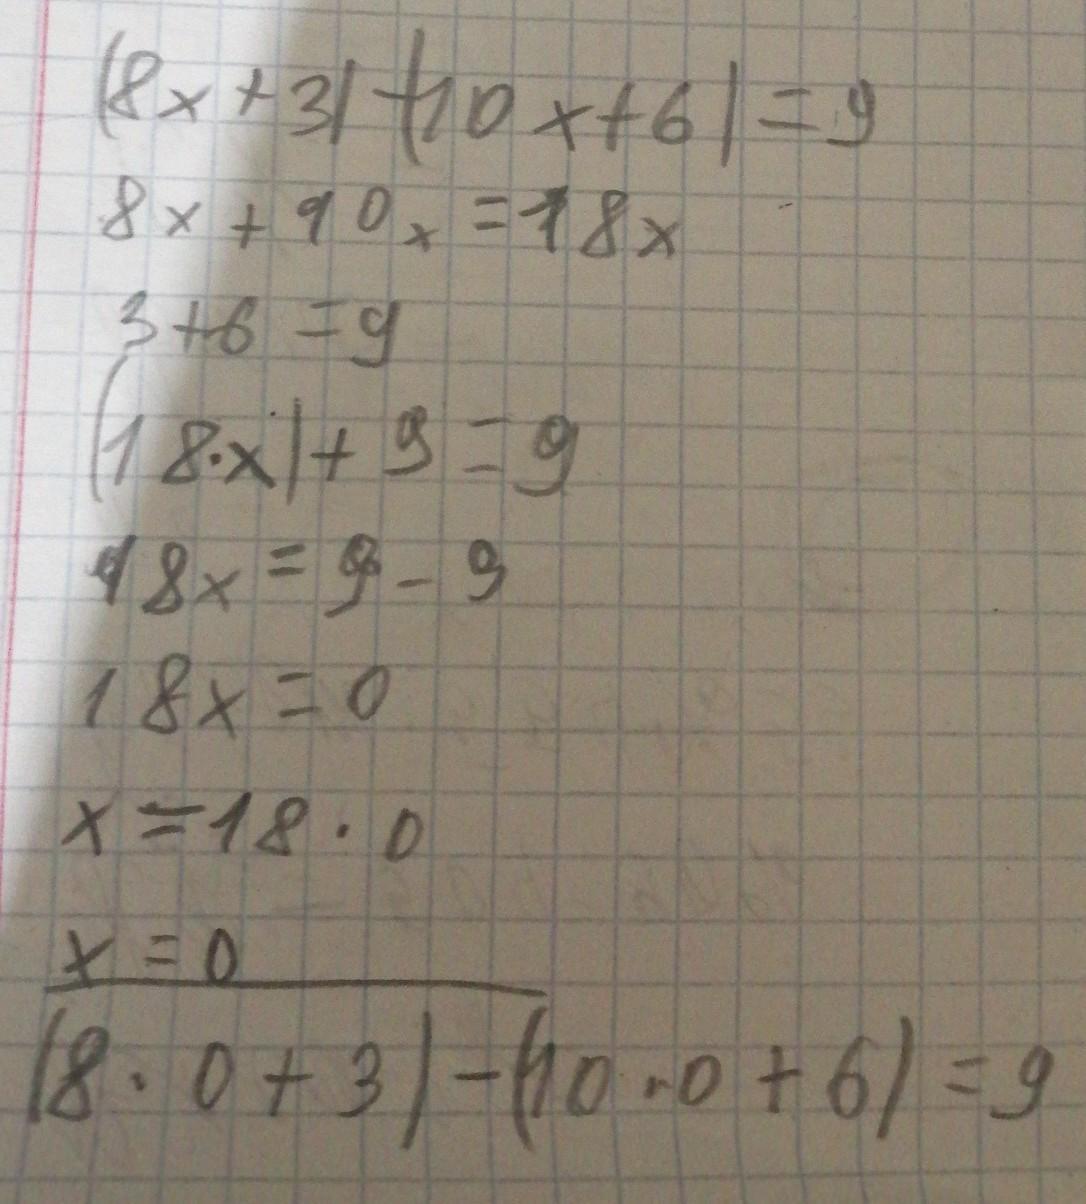 (8x+3)-(10x+6)=9
8x+10x=18x
3+6=9
(18·x)+9=9
18x=9-9
18x=0
x=18·0
x=0
(8·0+3)-(10·0+6)=9